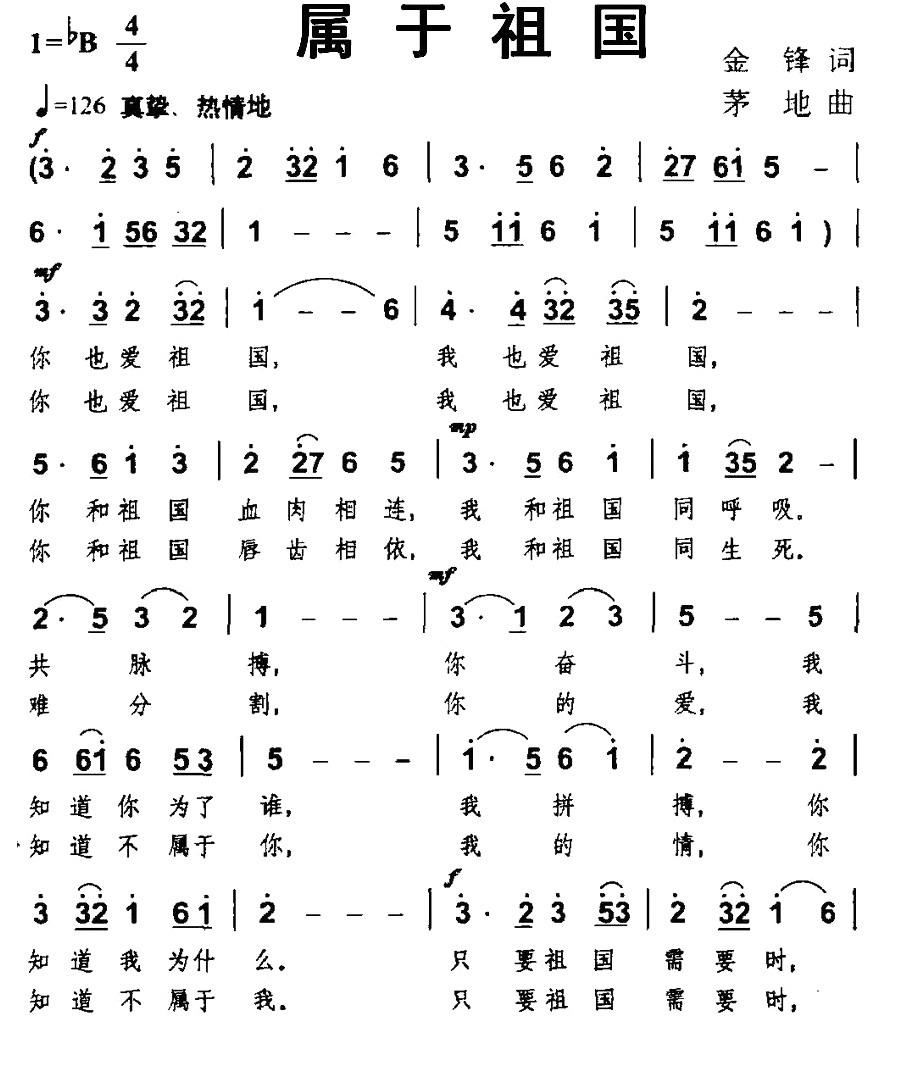 属于祖国
1=♭B 4/4
金锋词
♩=126 真挚、热情地
茅地曲
f
(3· 2 3 5 | 2 32 1 6 | 3· 5 6 2 | 27 61 5 – |
6· 1 56 32 | 1 – – – | 5 11 6 1 | 5 11 6 1 ) |
mf
3· 3 2 32 | 1 – – 6 | 4· 4 32 35 | 2 – – – |
你也爱祖国, 我也爱祖国,
你也爱祖国, 我也爱祖国,
mp
5· 6 1 3 | 2 27 6 5 | 3· 5 6 1 | 1 35 2 – |
你和祖国血肉相连, 我和祖国同呼吸.
你和祖国唇齿相依, 我和祖国同生死.
mf
2· 5 3 2 | 1 – – – | 3· 1 2 3 | 5 – – 5 |
共脉搏, 你奋斗, 我
难分割, 你的爱, 我
6 61 6 53 | 5 – – – | 1· 5 6 1 | 2 – – 2 |
知道你为了谁, 我拼搏, 你
知道不属于你, 我的情, 你
f
3 32 1 61 | 2 – – – | 3· 2 3 53 | 2 32 1 6 |
知道我为什么. 只要祖国需要时,
知道不属于我. 只要祖国需要时,